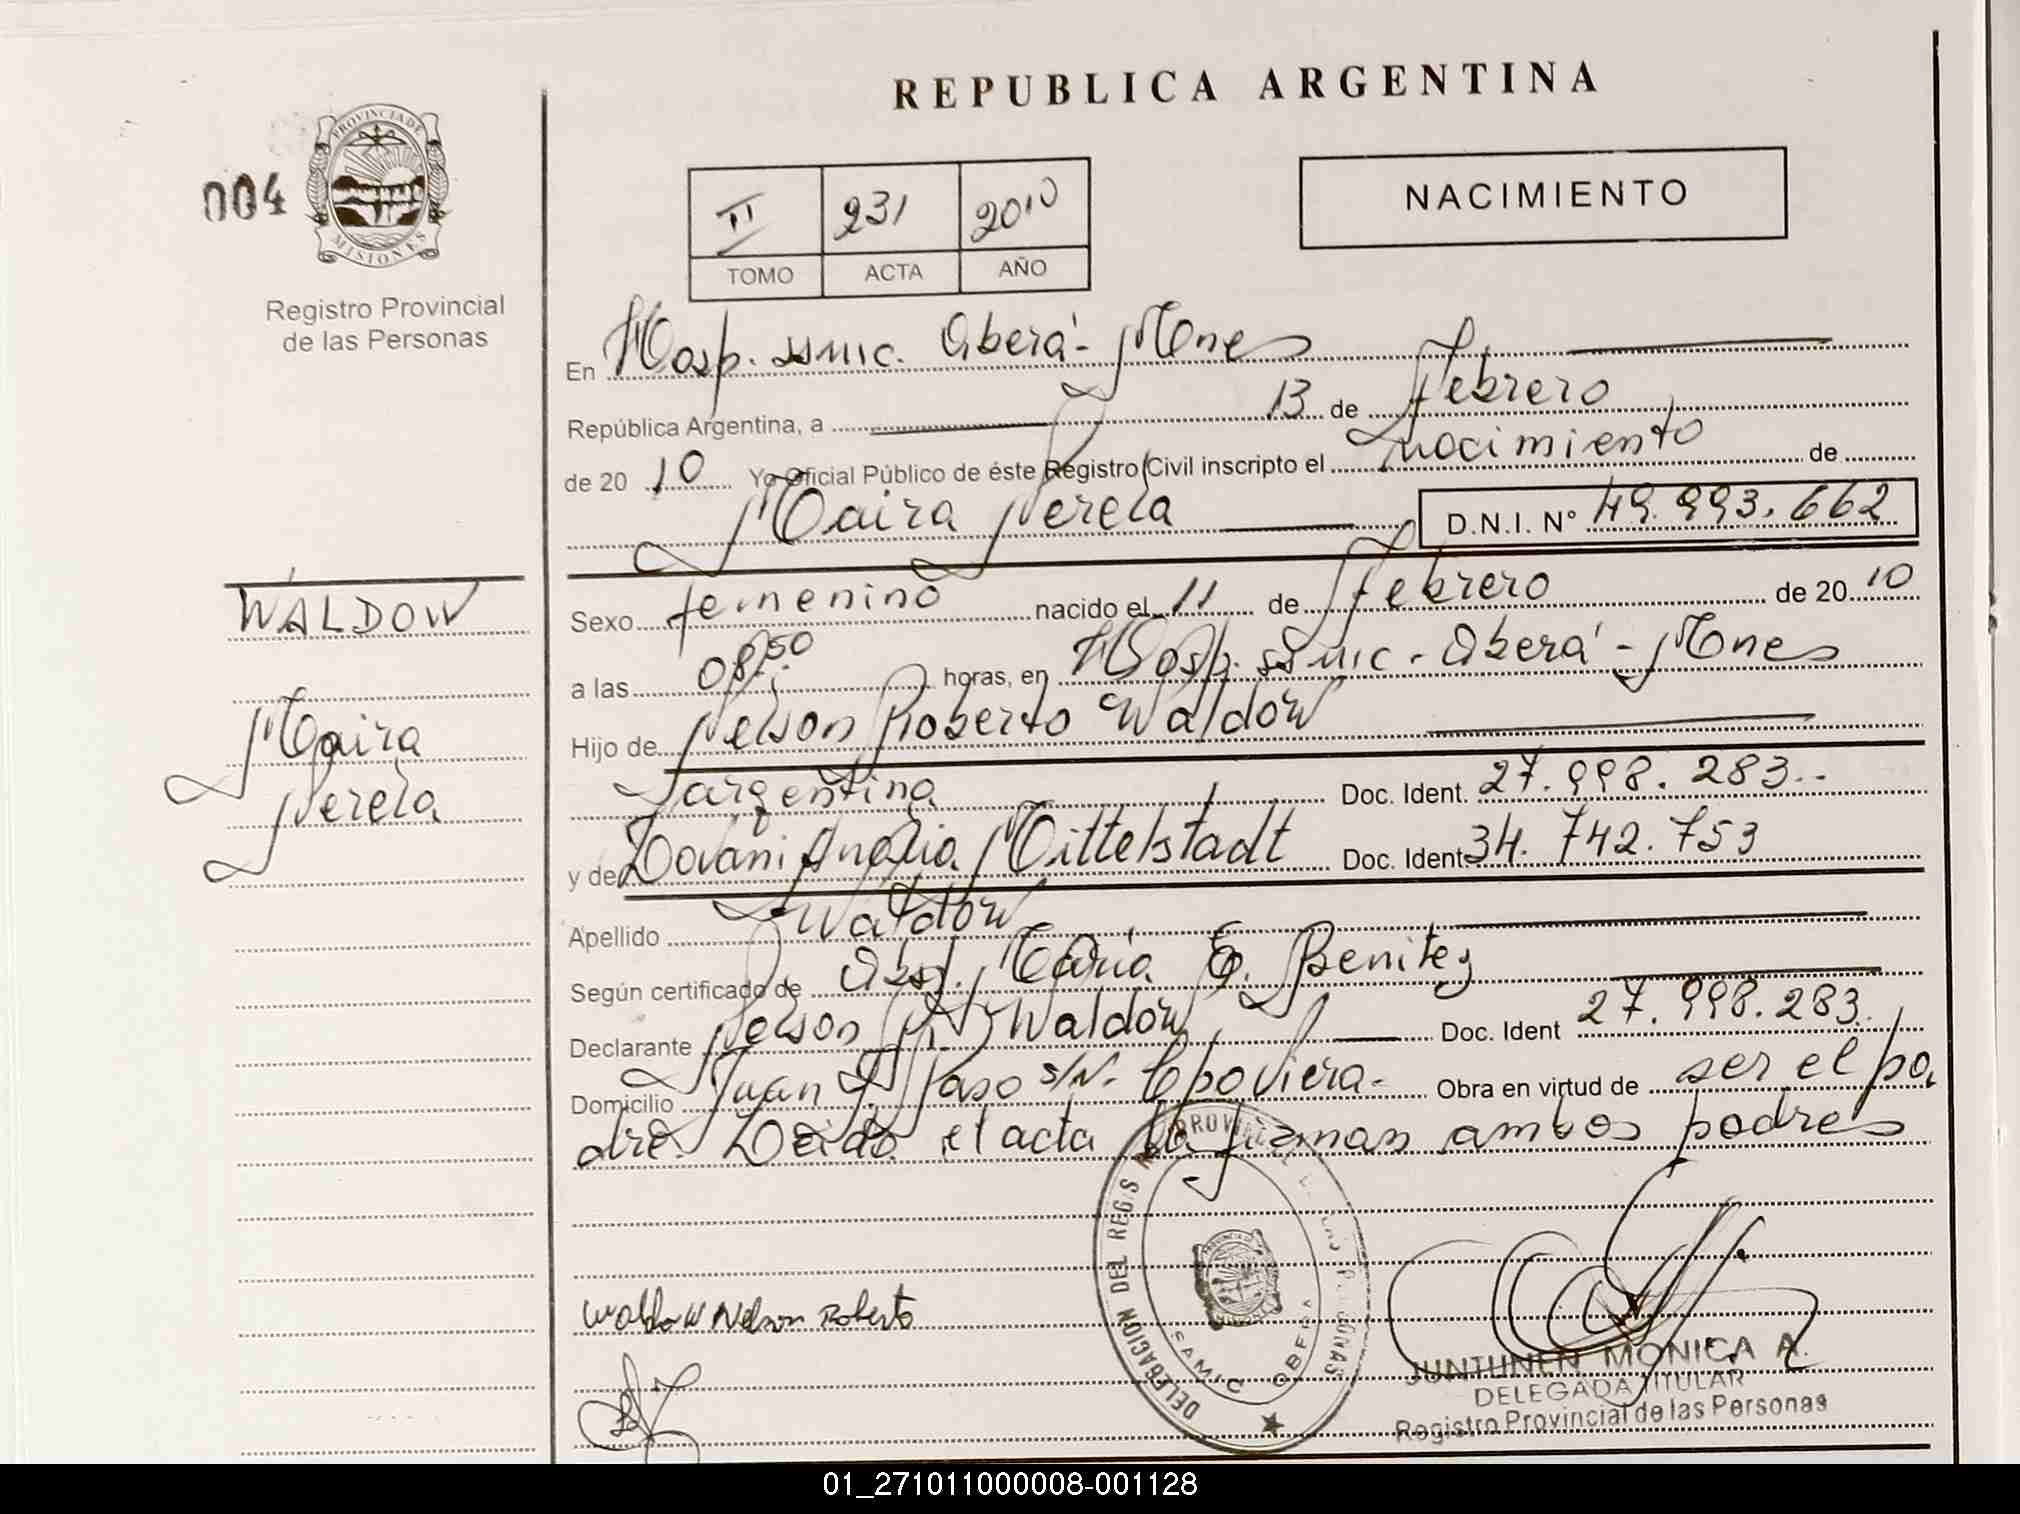 REPUBLICA ARGENTINA
004
PROVINCIA DE
MISIONES
Registro Provincial
de las Personas
II 231 2010
TOMO ACTA AÑO
NACIMIENTO
En Hosp. SAMIC. Oberá - Mnes
República Argentina, a 13 de Febrero
de 20 10 Yo Oficial Público de éste Registro Civil inscripto el nacimiento de
Maira Nerela D.N.I. Nº 49.993.662
Sexo femenino nacido el 11 de Febrero de 20 10
a las 08:50 horas, en Hosp. SAMIC - Oberá - Mnes
Hijo de Nelson Roberto Waldow
argentina Doc. Ident. 27.998.283
y de Dovani Analia Mittelstadt Doc. Ident 34.742.753
Apellido Waldow
Según certificado de Obst. Maria E. Benitez
Declarante Nelson R. Waldow Doc. Ident 27.998.283
Domicilio Juan J. Paso s/N. Cpo Viera - Obra en virtud de ser el pa
dre. Leida el acta la firman ambos padres
WALDOW
Maira
Nerela
Waldow Nelson Roberto
DELEGACION DEL REGIS PROVINCIAL
SAMIC OBERA
JUNTUNEN MONICA A.
DELEGADA TITULAR
Registro Provincial de las Personas
01_271011000008-001128